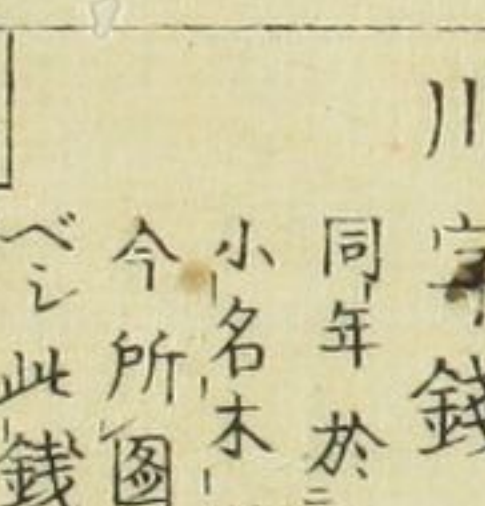 川字銭
同年於
小名木
今所図
べし此銭